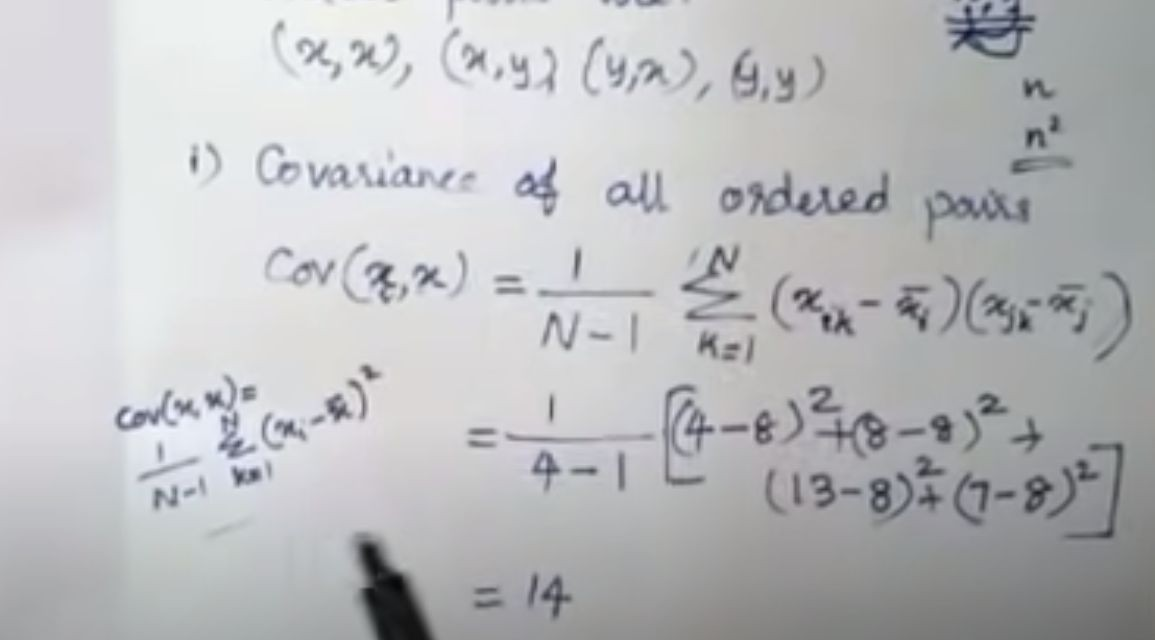 (x,x), (x,y) (y,x), (y,y)
n
n²
i) Covariance of all ordered pairs
Cov(x,x) = 1/(N-1) N Σ k=1 (x_ik - x̄_i)(x_jk - x̄_j)
cov(x,x)=
1/(N-1) N Σ k=1 (x_i - x̄)²
= 1/(4-1) [(4-8)²+(8-8)²+
(13-8)²+(7-8)²]
= 14